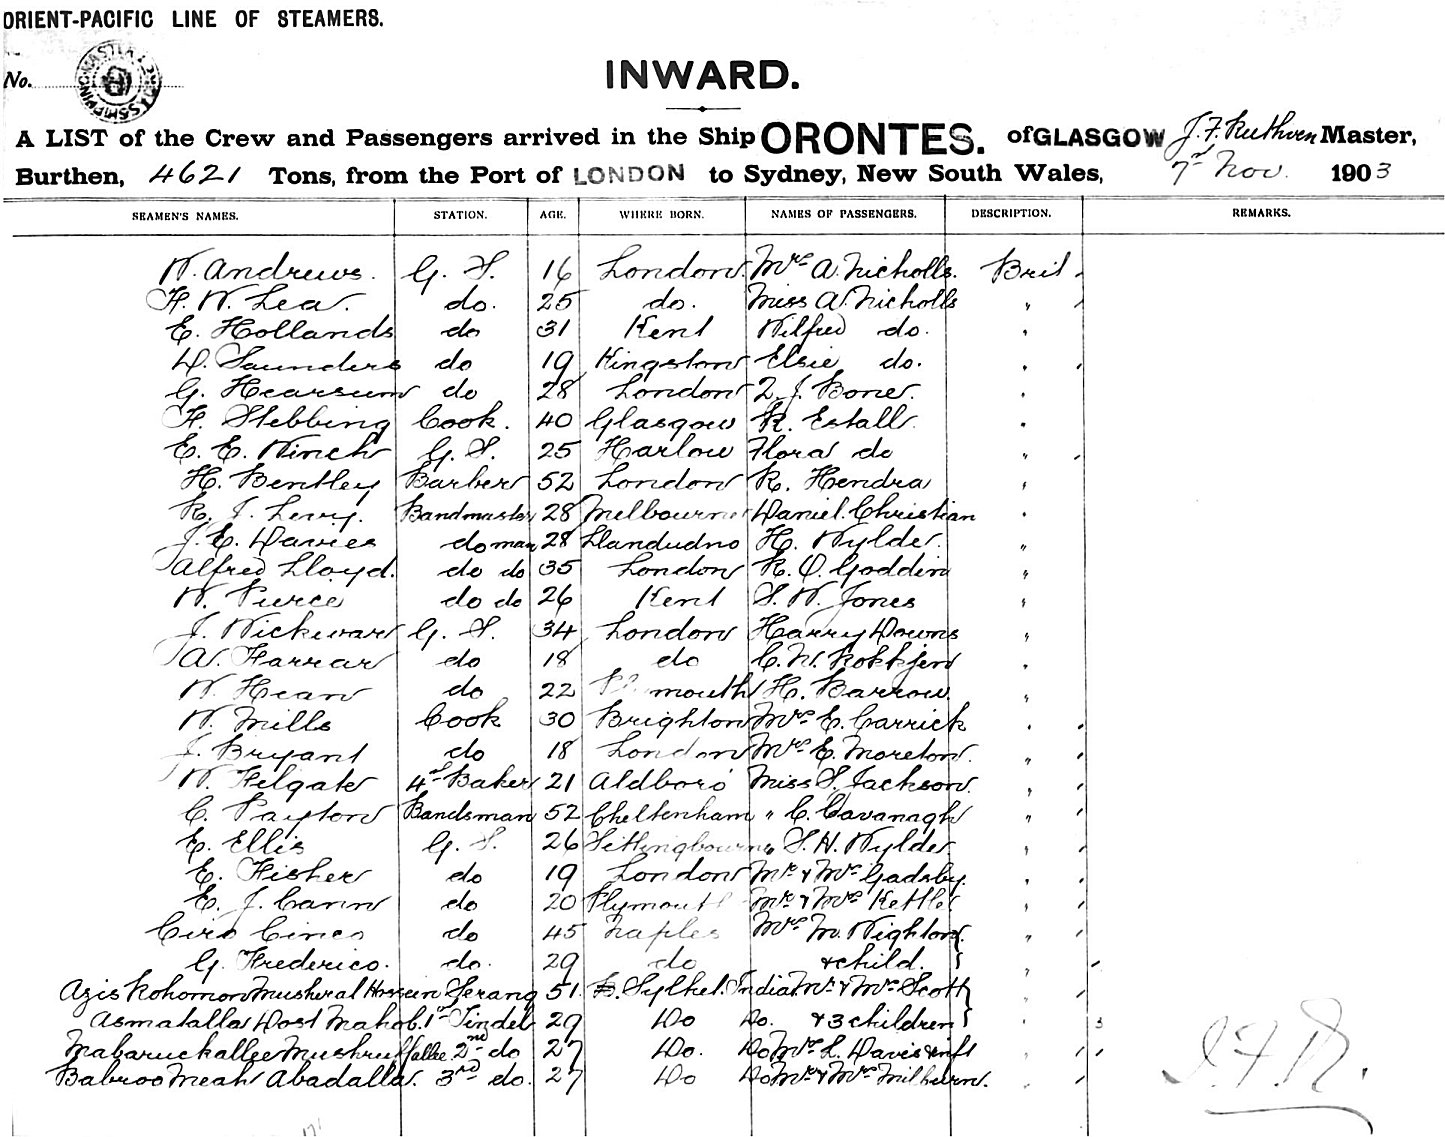 ORIENT-PACIFIC LINE OF STEAMERS.
No.
INWARD.
A LIST of the Crew and Passengers arrived in the Ship ORONTES. of GLASGOW J. F. Ruthven Master,
Burthen, 4621 Tons, from the Port of LONDON to Sydney, New South Wales, 7th Nov. 1903
SEAMEN'S NAMES. STATION. AGE. WHERE BORN. NAMES OF PASSENGERS. DESCRIPTION. REMARKS.
W. Andrews. G. S. 16 London. Mrs A. Nicholls. Brit.
F. W. Lea. do. 25 do. Miss A. Nicholls "
E. Hollands do 31 Kent Wilfred do. "
D. Saunders do 19 Kingston Elsie do. "
G. Hearsum do 28 London J. Bone. "
F. Stebbing Cook. 40 Glasgow R. Estall "
E. E. Winch G. S. 25 Harlow Flora do "
H. Bentley Barber 52 London R. Hendra "
R. J. Levy. Bandmaster 28 Melbourne Daniel Christian "
J. E. Davies do man 28 Llandudno H. Wylde. "
Alfred Lloyd. do do 35 London R. O. Goddin "
W. Pierce do do 26 Kent S. W. Jones "
J. Wickwar G. S. 34 London Harry Downs "
A. Farrar do 18 do C. W. "
W. Hean do 22 Plymouth H. Barrow. "
W. Mills Cook 30 Brighton Mrs E. Carrick "
J. Bryant do 18 London Mrs E. Moreton. "
W. Felgate 4th Baker 21 Aldboro' Miss S. Jackson. "
C. Payton Bandsman 52 Cheltenham " C. Cavanagh "
E. Ellis G. S. 26 Sittingbourne " S. H. Wylde. "
E. Fisher do 19 London Mr & Mrs Gadsby. "
E. J. Cann do 20 Plymouth Mr & Mrs Kettle "
Ciro Cinco do 45 Naples Mrs M. Wighton. "
G. Frederico. do. 29 do & child. "
Azis Rohomon Musheral Hossein Serang 51 B. Sylhet. India Mr & Mrs Scott "
Asmatalla Dost Mahob. 1st Tindel 29 Do Do. & 3 children "
Mabaruckallee Mushrufallee. 2nd do 27 Do. Do Mrs L. Davis & inft "
Babroo Meah Abadalla. 3rd do. 27 Do Do Mr & Mrs Milburn. "
J. F. R.